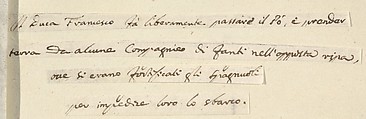 Il Duca Francesco fà liberamente passare il Pò, e prender
terra da alcune Compagnie di fanti nell'opposta ripa,
ove si erano fortificati gli Spagnuoli
per impedire loro lo sbarco.